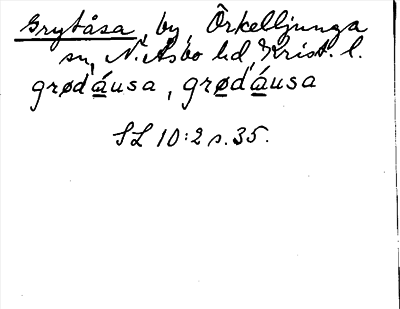 Grytåsa, by, Örkelljunga
sn, N. Åsbo hd, Krist. l.
grødáusa, grødáusa
SL 10:2 s. 35.